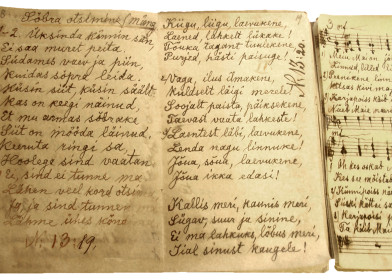 Sõbra otsimine (mäng
2. Üksinda kõnnin siin,
Ei saa muret peita
Südames vaev ja piin,
Kuidas sõpra leida.
Küsin siit küsin säält
Kas on keegi näinud,
Et mu armas sõbrake
Siit on mööda läinud,
Keeruta ringi sa
Hoolega sind vaatan
Ei, sind ei tunne ma
Lähen veel kord otsi
Ja, ja sind tunnen
Lähme ühes kõnd
N: 13:19.
Kiigu, liigu, laevukene,
Lained, lahkelt liikke!
Tõuka tagant tuulekene,
Purjed, hästi paisuge!
N 13:20.
2. Vaga, ilus ilmakene,
Kuldselt läigi merele!
Soojalt paista, päiksekene,
Taevast vaata lahkeste!
3. Laenetest läbi, laevukene,
Lenda nagu linnuke!
Jõua, sõua, laevukene,
Jõua ikka edasi!
Kallis meri, kaunis meri,
Sügav, suur ja sinine,
Ei ma lahkuks, lõbus meri,
Iial sinust kaugele!
Mein Maien